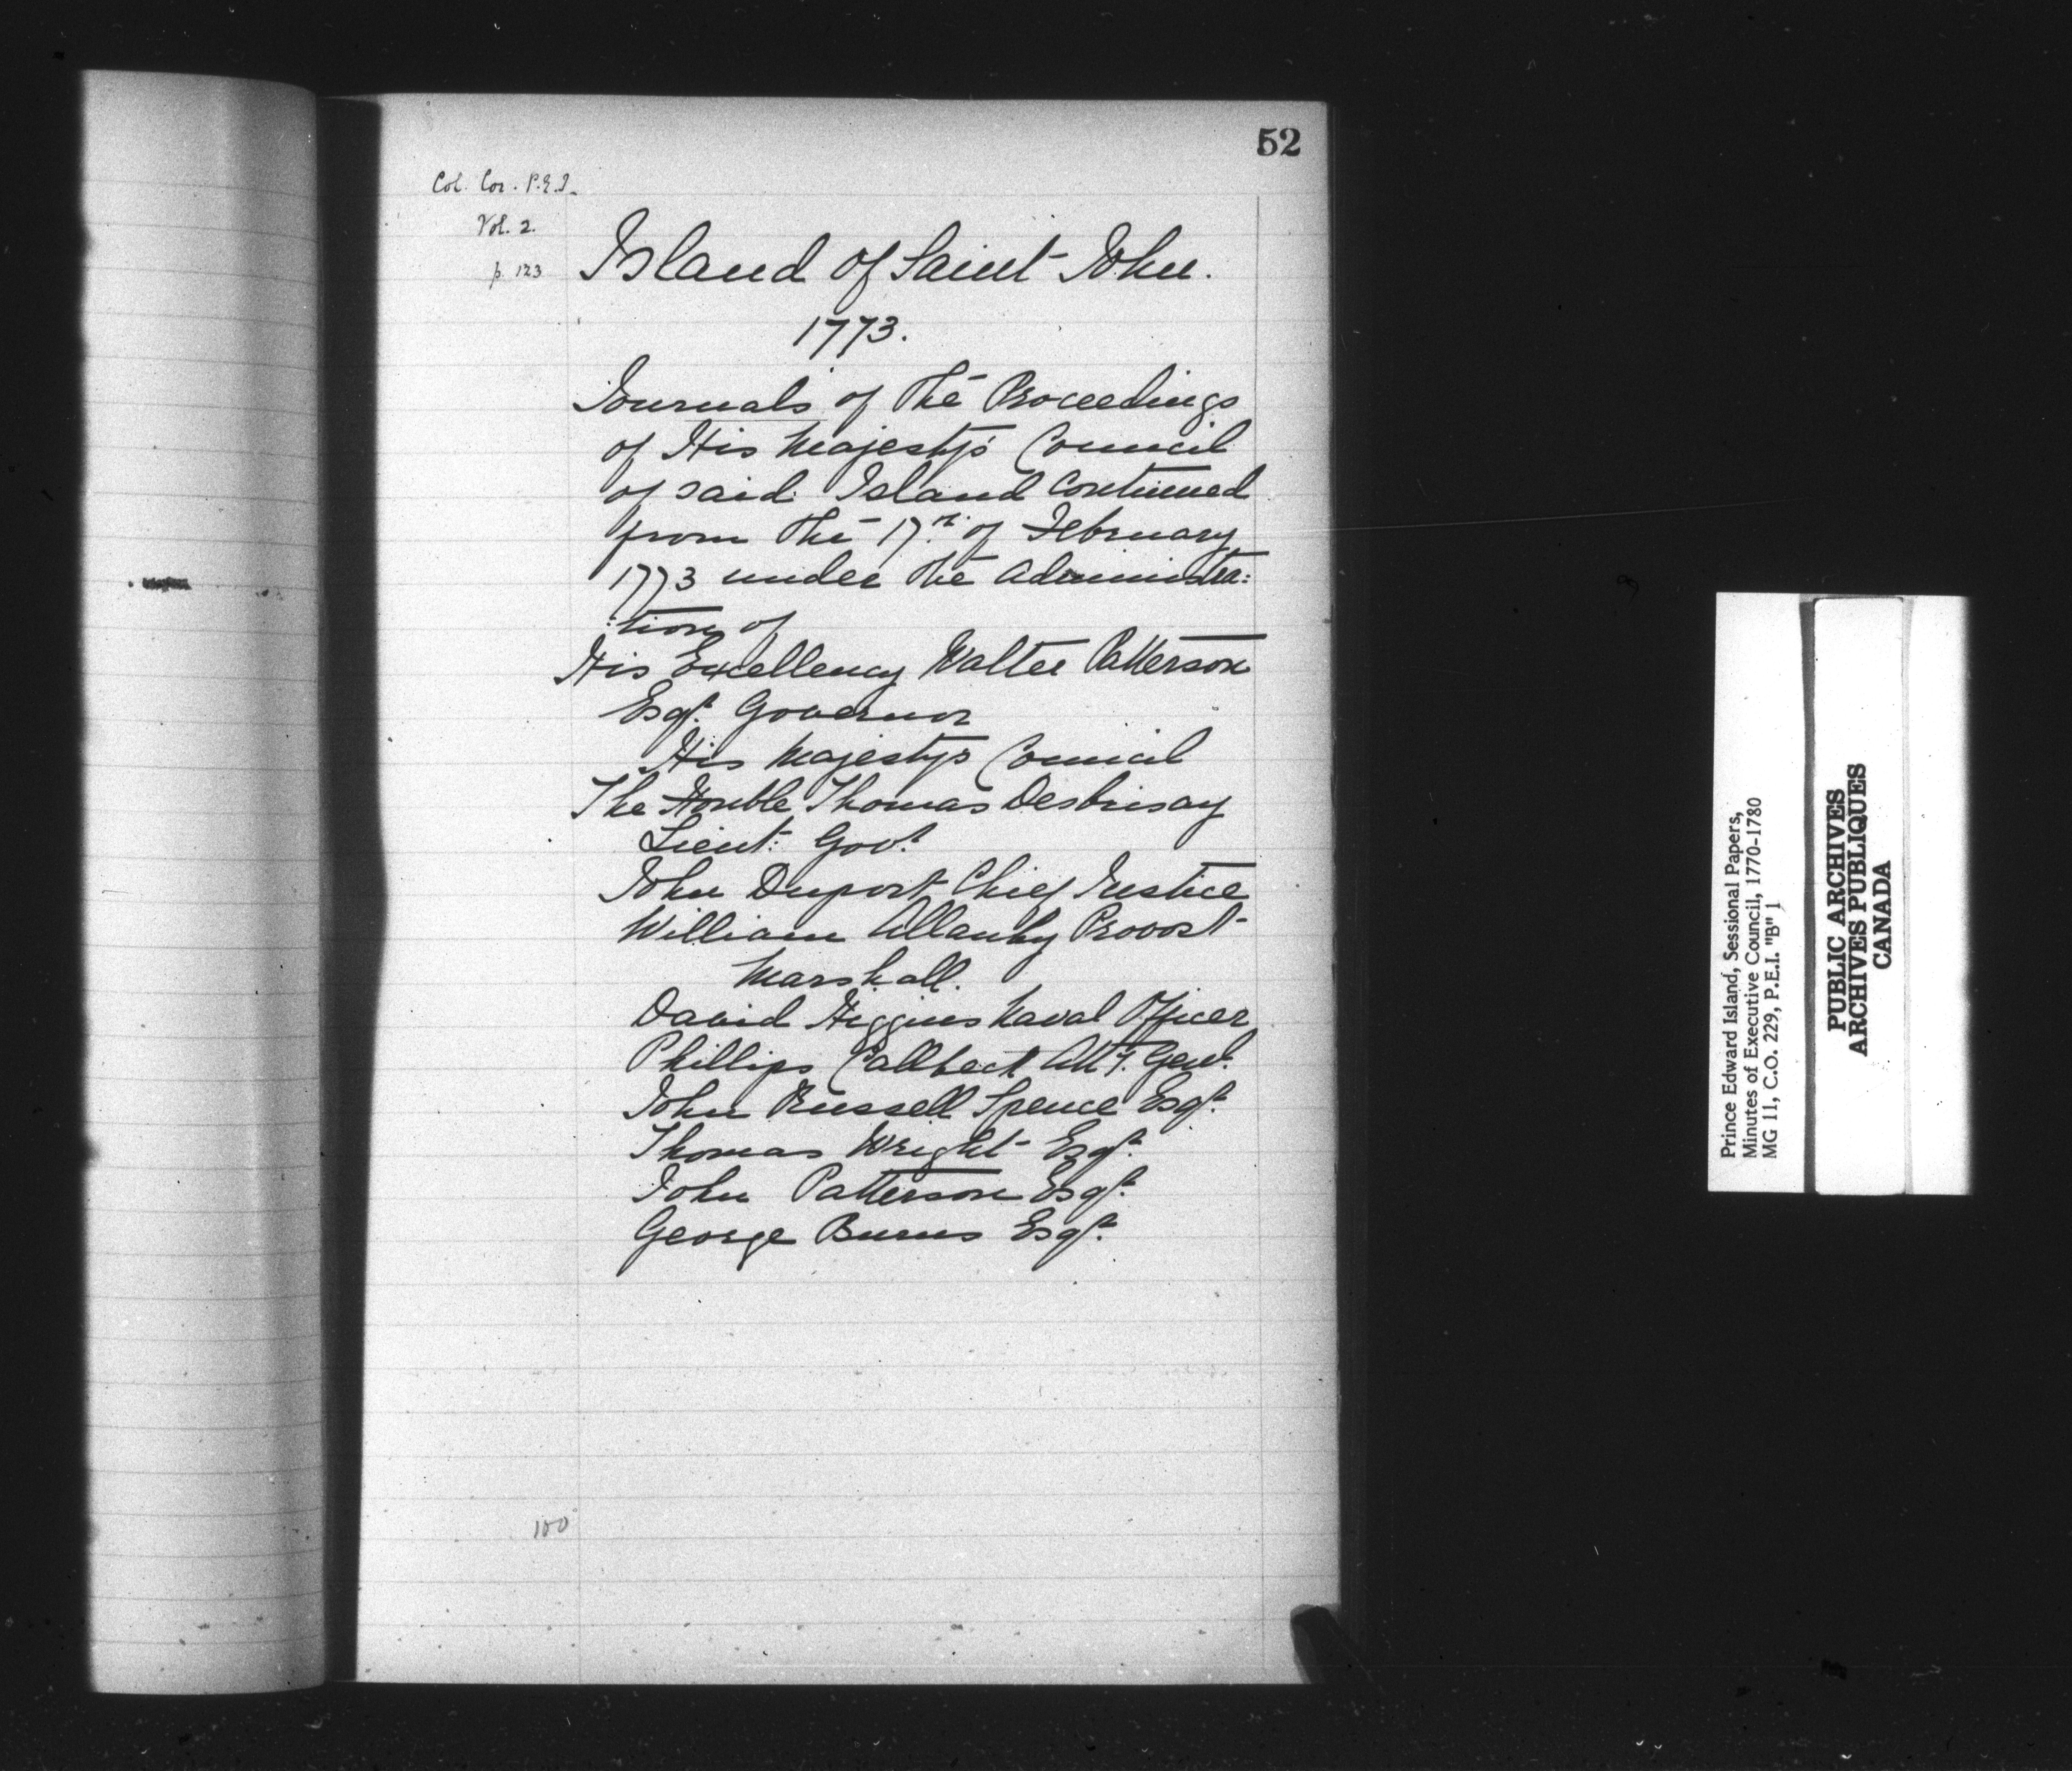 52
Col. Cor. P.E.I.
Vol. 2.
p. 123
Island of Saint John.
1773.
Journals of The Proceedings
of His Majesty's Council
of said Island Continued
from The 17th. of February
1773 under The Administra:
:tion of
His Excellency Walter Patterson
Esqr. Governor
His Majestys Council
The Honble Thomas Desbrisay
Lieut: Govr.
John Duport Chief Justice
William Allanby Provost
Marshall.
David Higgins Naval Officer
Phillips Callbeck Atty. Genl.
John Russell Spence Esqr.
Thomas Wright Esqr.
John Patterson Esqr.
George Burns Esqr.
100
Prince Edward Island, Sessional Papers,
Minutes of Executive Council, 1770-1780
MG 11, C.O. 229, P.E.I. "B" 1
PUBLIC ARCHIVES
ARCHIVES PUBLIQUES
CANADA